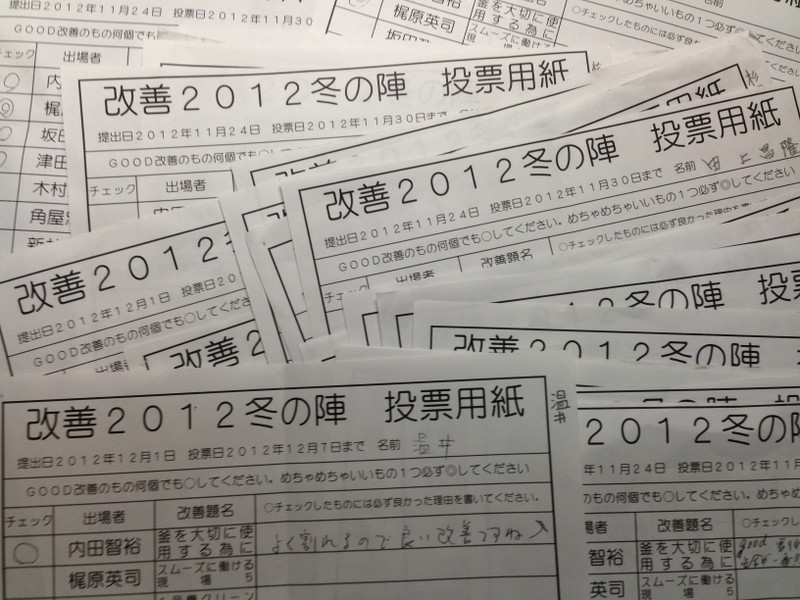 提出日2012年11月24日 投票日2012年11月30
GOOD改善のもの何個でも
チェック 出場者
内
梶
坂田
津田
木村
角屋
梶原英司
スムーズに働ける
釜を大切に使
用する為に
○チェックしたものには必ず良かった理由を書い
改善2012冬の陣 投票用紙
提出日2012年11月24日 投票日2012年11月30日まで
GOOD改善のもの何個でも○してくだ
チェック 出場者
改善2012冬の陣 投票用紙
提出日2012年11月24日 投票日2012年11月30日まで 名前 田上昌隆
GOOD改善のもの何個でも○してください。めちゃめちゃいいもの1つ必ず◎してください
チェック 出場者 改善題名 ○チェックしたものには必ず良かった理由を
改善2012
提出日2012年12月1日 投票日20
GOOD改善のもの何個でも○してくださ
出場
改善2
改善2012冬の陣 投
改善2012冬の陣 投票用紙
提出日2012年12月1日 投票日2012年12月7日まで 名前 温井
温井
GOOD改善のもの何個でも○してください。めちゃめちゃいいもの1つ必ず◎してください
チェック 出場者 改善題名 ○チェックしたものには必ず良かった理由を書いてください。
○ 内田智裕 釜を大切に使
用する為に よく割れるので良い改善ですね
梶原英司 スムーズに働ける
現場5
2012冬の陣
年11月24日 投票日2012年11
のもの何個でも○してください。めちゃめ
場者 改善題名 ○チェック
智裕 釜を大切に使
用する為に good
英司 スムーズに働ける
現場5